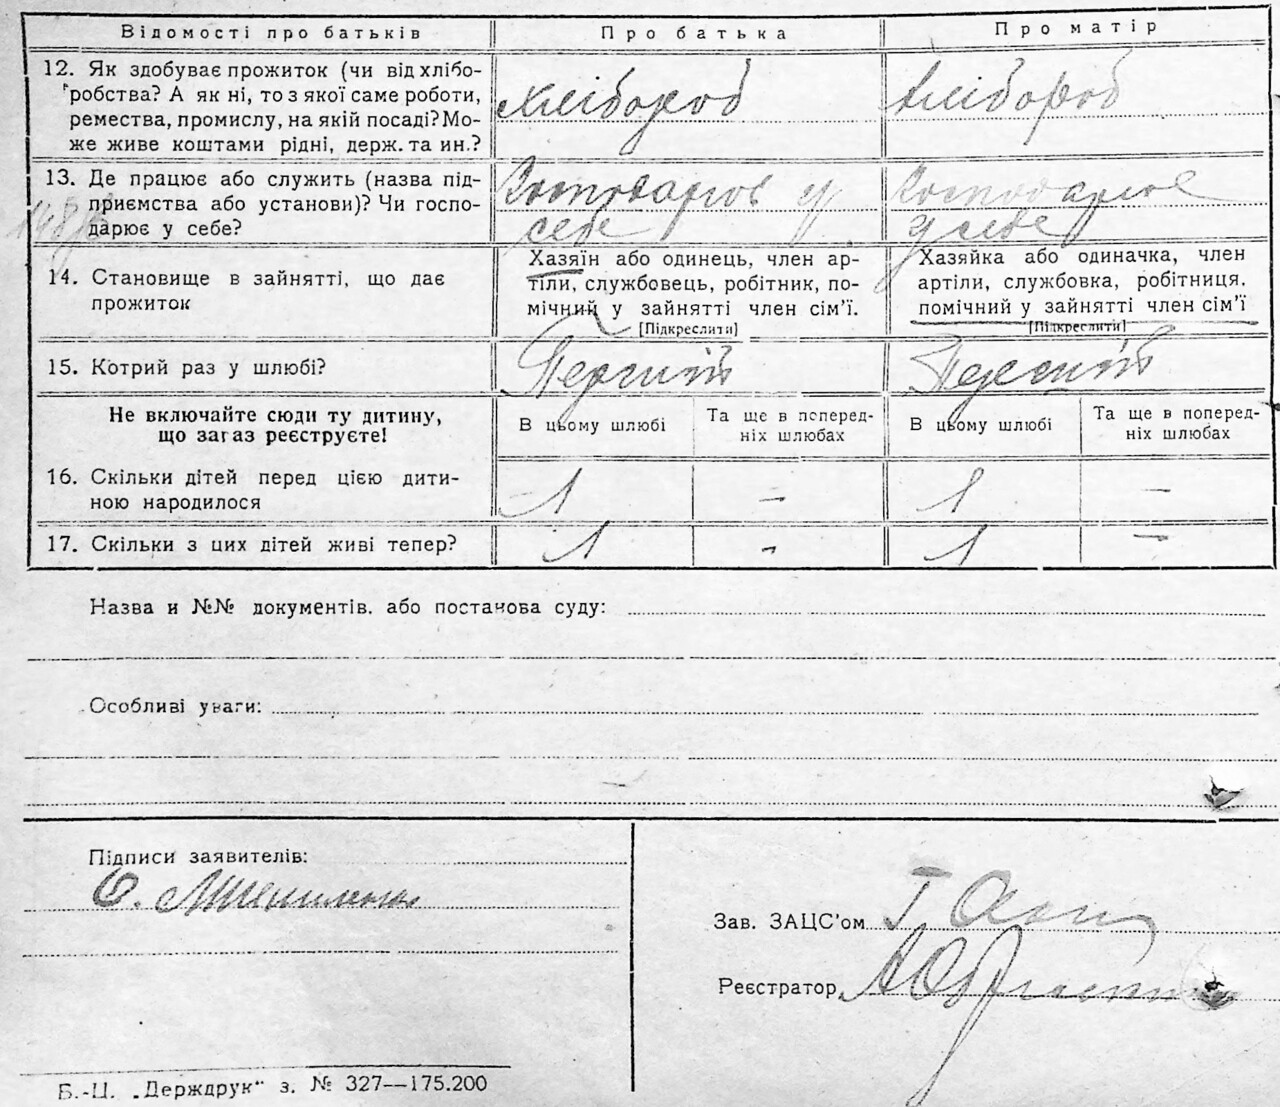 Відомості про батьків Про батька Про матір
12. Як здобуває прожиток (чи від хлібо-
робства? А як ні, то з якої саме роботи,
ремества, промислу, на якій посаді? Мо-
же живе коштами рідні, держ. та ин.?
Хлібороб Хлібороб
13. Де працює або служить (назва під-
приємства або установи)? Чи госпо-
дарює у себе?
Господарює у
себе
Господарює
у себе
14. Становище в зайнятті, що дає
прожиток
Хазяїн або одинець, член ар-
тіли, службовець, робітник, по-
мічний у зайнятті член сім'ї.
[Підкреслити]
Хазяйка або одиначка, член
артіли, службовка, робітниця.
помічний у зайнятті член сім'ї
[Підкреслити]
15. Котрий раз у шлюбі? Перший Перший
Не включайте сюди ту дитину,
що зараз реєструєте!
В цьому шлюбі Та ще в поперед-
ніх шлюбах
В цьому шлюбі Та ще в поперед-
ніх шлюбах
16. Скільки дітей перед цією дити-
ною народилося
1 – 1 –
17. Скільки з цих дітей живі тепер? 1 - 1 –
Назва и №№ документів. або постанова суду:
Особливі уваги:
Підписи заявителів:
Зав. ЗАЦС'ом
Реєстратор
Б.-Ц. „Держдрук" з. № 327—175.200